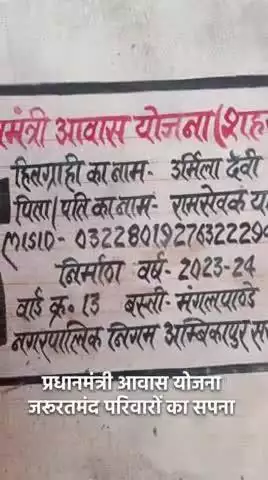 मंत्री आवास योजना (शह
हितग्राही का नाम- उर्मिला देवी
पिता/पति का नाम- रामसेवक या
MISID- 0322801927632229
निर्माण वर्ष- 2023-24
वार्ड क्र. 13 बस्ती- मंगलपाण्डे
नगरपालिक निगम अम्बिकापुर
प्रधानमंत्री आवास योजना
जरूरतमंद परिवारों का सपना